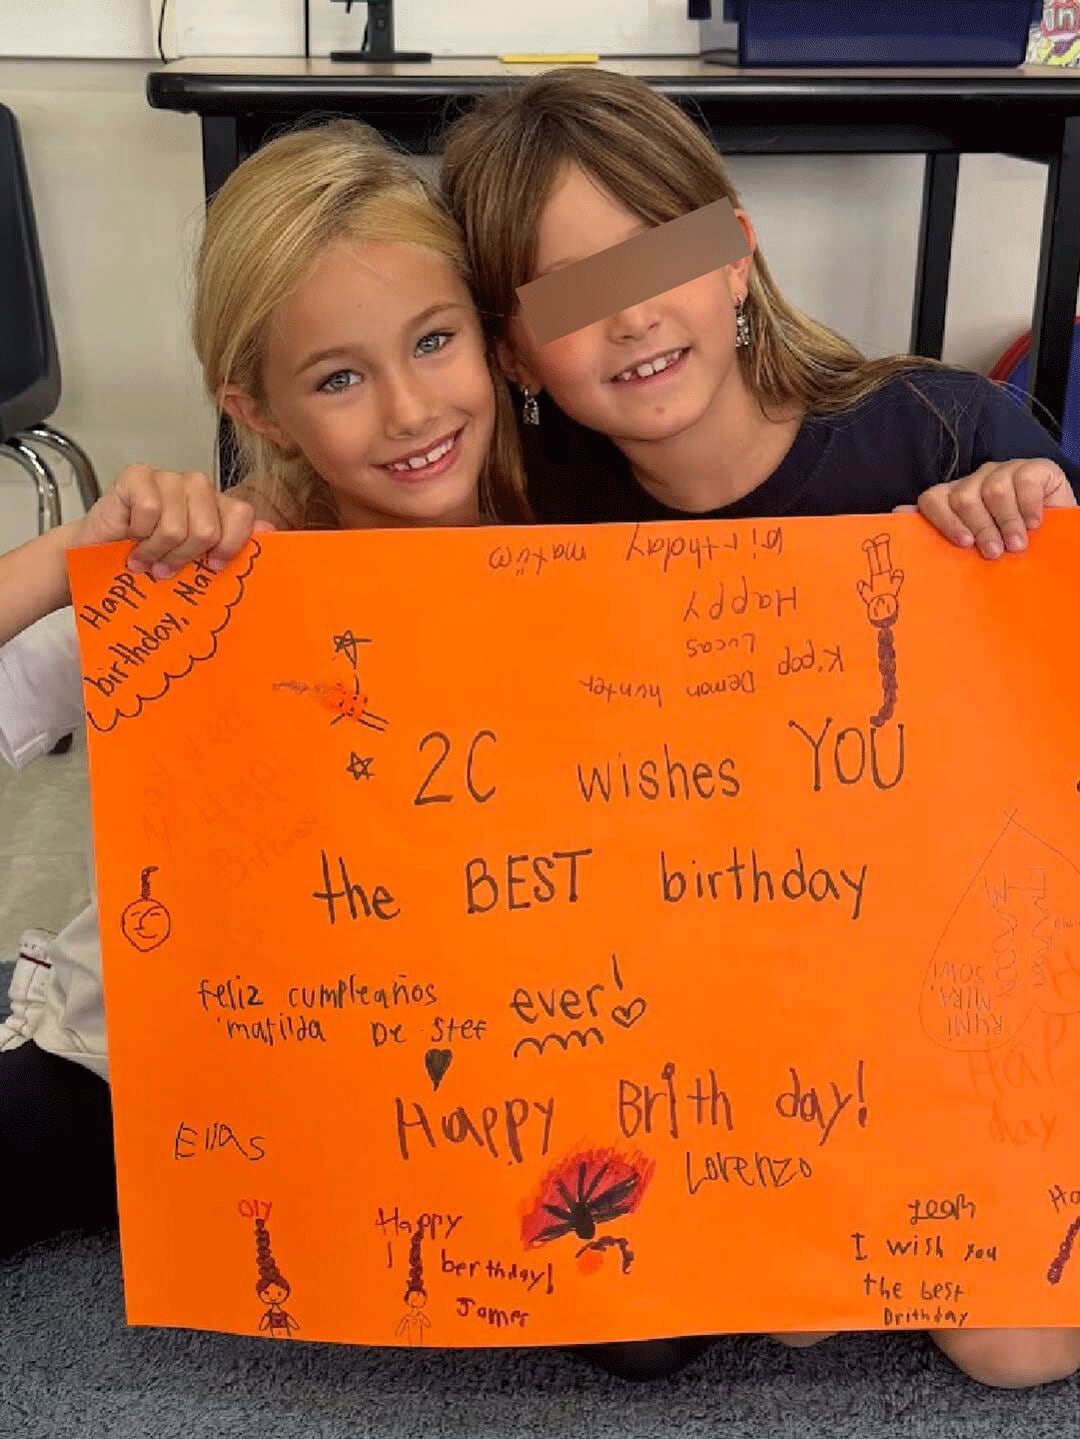 Happy
birthday, Mat
birthday
Happy
Lucas
K'pop Demon hunter
2C wishes YOU
the BEST birthday
ever!
feliz cumpleaños
matilda De Stef
Happy Brith day!
Lorenzo
Elias
Happy
berthday!
James
I wish you
the best
Drithday
RUMI
MIRA
Hap
day
Ha